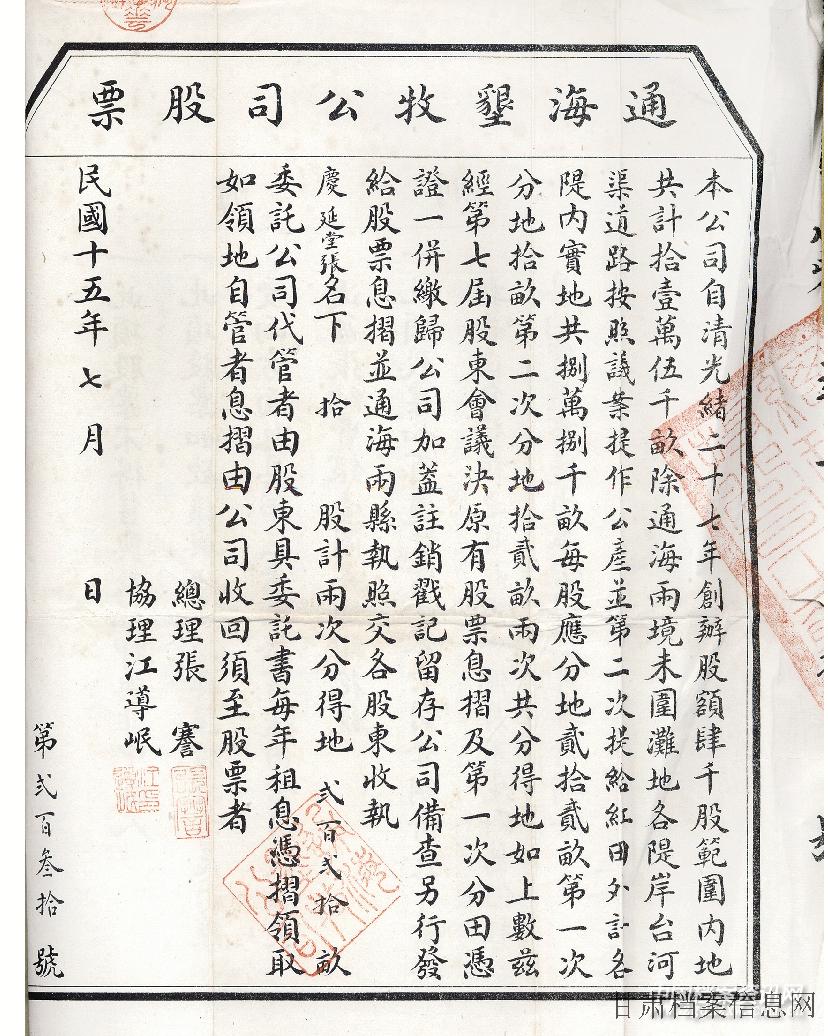 通海墾牧公司股票
本公司自清光緒二十七年創辦股額肆千股範圍内地
共計拾壹萬伍千畝除通海兩境未圍灘地各隄岸台河
渠道路按照議案提作公產並第二次提給紅田外計各
隄内實地共捌萬捌千畝每股應分地貳拾貳畝第一次
分地拾畝第二次分地拾貳畝兩次共分得地如上數兹
經第七屆股東會議決原有股票息摺及第一次分田憑
證一併繳歸公司加蓋註銷戳記留存公司備查另行發
給股票息摺並通海兩縣執照交各股東收執
慶延堂張名下 拾 股計兩次分得地 弍百弍拾 畝
委託公司代管者由股東具委託書每年租息憑摺領取
如領地自管者息摺由公司收回須至股票者
總理張 謇
協理江導岷
民國十五年七月 日
第弍百叁拾號
甘肃档案信息网